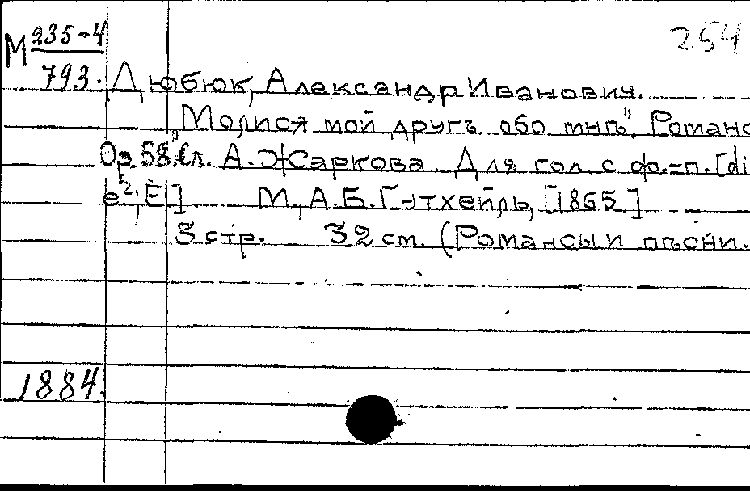 М 235-4
254
793. Дюбюк, Александр Иванович.
„Молися мой другъ обо мнѣ". Романс
Ор. 58. Сл. А. Жаркова. Для гол. с ф.-п. [di
e², E] М., А.Б. Гутхейль, [1865]
3 стр. 32 см. (Романсы и пѣсни.
1884.